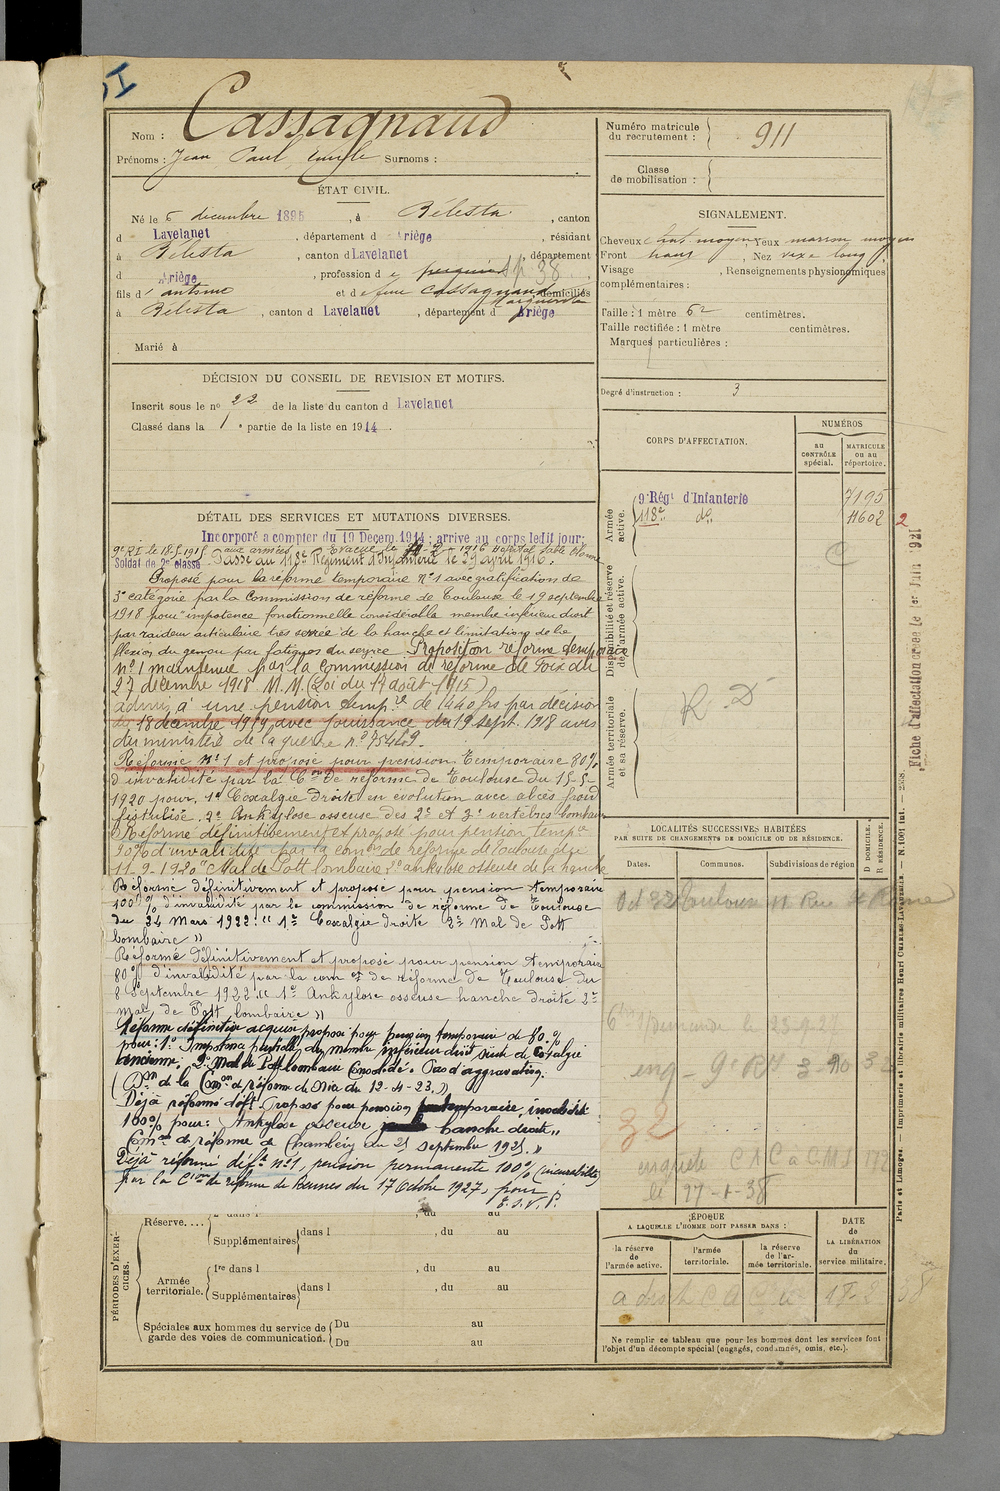 Cassagnaud
Nom :
Prénoms : Jean Paul Emile Surnoms :
ÉTAT CIVIL.
Né le 6 décembre 1895, à Bélesta, canton
d Lavelanet, département d Ariège, résidant
à Bélesta, canton d Lavelanet, département
d Ariège, profession d
fils d' et d Cassagnaud domiciliés
à Bélesta, canton d Lavelanet, département d Ariège
Marié à
DÉCISION DU CONSEIL DE REVISION ET MOTIFS.
Inscrit sous le no 22 de la liste du canton d Lavelanet
Classé dans la 1e partie de la liste en 1914.
DÉTAIL DES SERVICES ET MUTATIONS DIVERSES.
Incorporé a compter du 19 Decem. 1914 ; arrive au corps ledit jour;
9e RI le 18-5-1915 aux armées Evacué le 1916 hopital
Soldat de 2e classe Passé au 118e Régiment d'Infanterie le 29 avril 1916.
Proposé pour la réforme temporaire No 1 avec gratification de
3e catégorie par la Commission de réforme de Toulouse le 19 septembre
1918 pour "impotence fonctionnelle considérable membre inférieur droit
par raideur articulaire très serrée de la hanche et limitations de la
flexion du genou par fatigues du service. Proposition reforme temporaire
no 1 maintenue par la Commission de réforme de Foix du
27 décembre 1918. M.M. (Loi du 17 août 1915)
admis à une pension temp.re de 1440 frs par décision
du 18 decembre 1919 avec jouissance du 19 sept. 1918 avis
du ministère de la guerre no 75489.
Réformé no 1 et proposé pour pension Temporaire 80%
d'invalidité par la Con de réforme de Toulouse du 15-5-
1920 pour 1o Coxalgie Droite en évolution avec abcès froid
fistulisé, 2o Ankylose osseuse des 2e et 3e vertèbres lombaires
Réformé définitivement et proposé pour pension temp.re
90% d'invalidité par la con de réforme de Toulouse du
11-9-1920 Mal de Pott lombaire 2o ankylose osseuse de la hanche
Réformé définitivement et proposé pour pension temporaire
100% d'invalidité par la commission de réforme de Toulouse
du 24 Mars 1922. "1o Coxalgie droite 2o Mal de Pott
lombaire"
Réformé définitivement et proposé pour pension temporaire
80% d'invalidité par la com on de réforme de Toulouse du
8 septembre 1922 "1o Ankylose osseuse hanche droite 2o
mal de Pott lombaire"
Réforme définitive acquise proposé pour pension temporaire de 80%
pour: 1o Impotence partielle du membre inférieur droit suite de Coxalgie
ancienne. 2o Mal de Pott lombaire Consolidé. Pas d'aggravation.
(Don de la Con de réforme de du 12-4-23.)
Déjà réformé déft. Proposé pour pension temporaire, invalidité
100% pour: Ankylose osseuse hanche droite"
Com on de réforme de Chambéry du 25 septembre 1925."
Déjà réformé déft no 1, pension permanente 100% (incurabilité)
par la Con de réforme de Rennes du 17 Octobre 1927, pour
E. S. V. P.
PÉRIODES D'EXERCICES.
Réserve.... , du au
Supplémentaires dans l , du au
Armée territoriale. 1re dans l , du au
Supplémentaires dans l , du au
Spéciales aux hommes du service de garde des voies de communication. Du au
Du au
Numéro matricule du recrutement : 911
Classe de mobilisation :
SIGNALEMENT.
Cheveux chat moyens Yeux marron moyen
Front haut, Nez long
Visage , Renseignements physionomiques
complémentaires :
Taille : 1 mètre 62 centimètres.
Taille rectifiée : 1 mètre centimètres.
Marques particulières :
Degré d'instruction : 3
CORPS D'AFFECTATION.
NUMÉROS
AU CONTRÔLE spécial.
MATRICULE OU AU répertoire.
Armée active.
9e Régt d'Infanterie 7195
118e do 11602 2
Disponibilité et réserve de l'armée active.
Armée territoriale et sa réserve.
R. D
Fiche d'affectation créée le 1er Juin 1921
LOCALITÉS SUCCESSIVES HABITÉES
PAR SUITE DE CHANGEMENTS DE DOMICILE OU DE RÉSIDENCE.
D DOMICILE.
R RÉSIDENCE.
Dates. Communes. Subdivisions de région
Oct 32 Toulouse 11 Rue St Rome
enq - 9e RM
32
enquête
le 27-1-38
ÉPOQUE
A LAQUELLE L'HOMME DOIT PASSER DANS :
la réserve de l'armée active.
l'armée territoriale.
la réserve de l'armée territoriale.
DATE de LA LIBÉRATION du service militaire.
Ne remplir ce tableau que pour les hommes dont les services font
l'objet d'un décompte spécial (engagés, condamnés, omis, etc.).
Paris et Limoges. — Imprimerie et librairie militaires Henri CHARLES-LAVAUZELLE. — N. 1001 Int. —